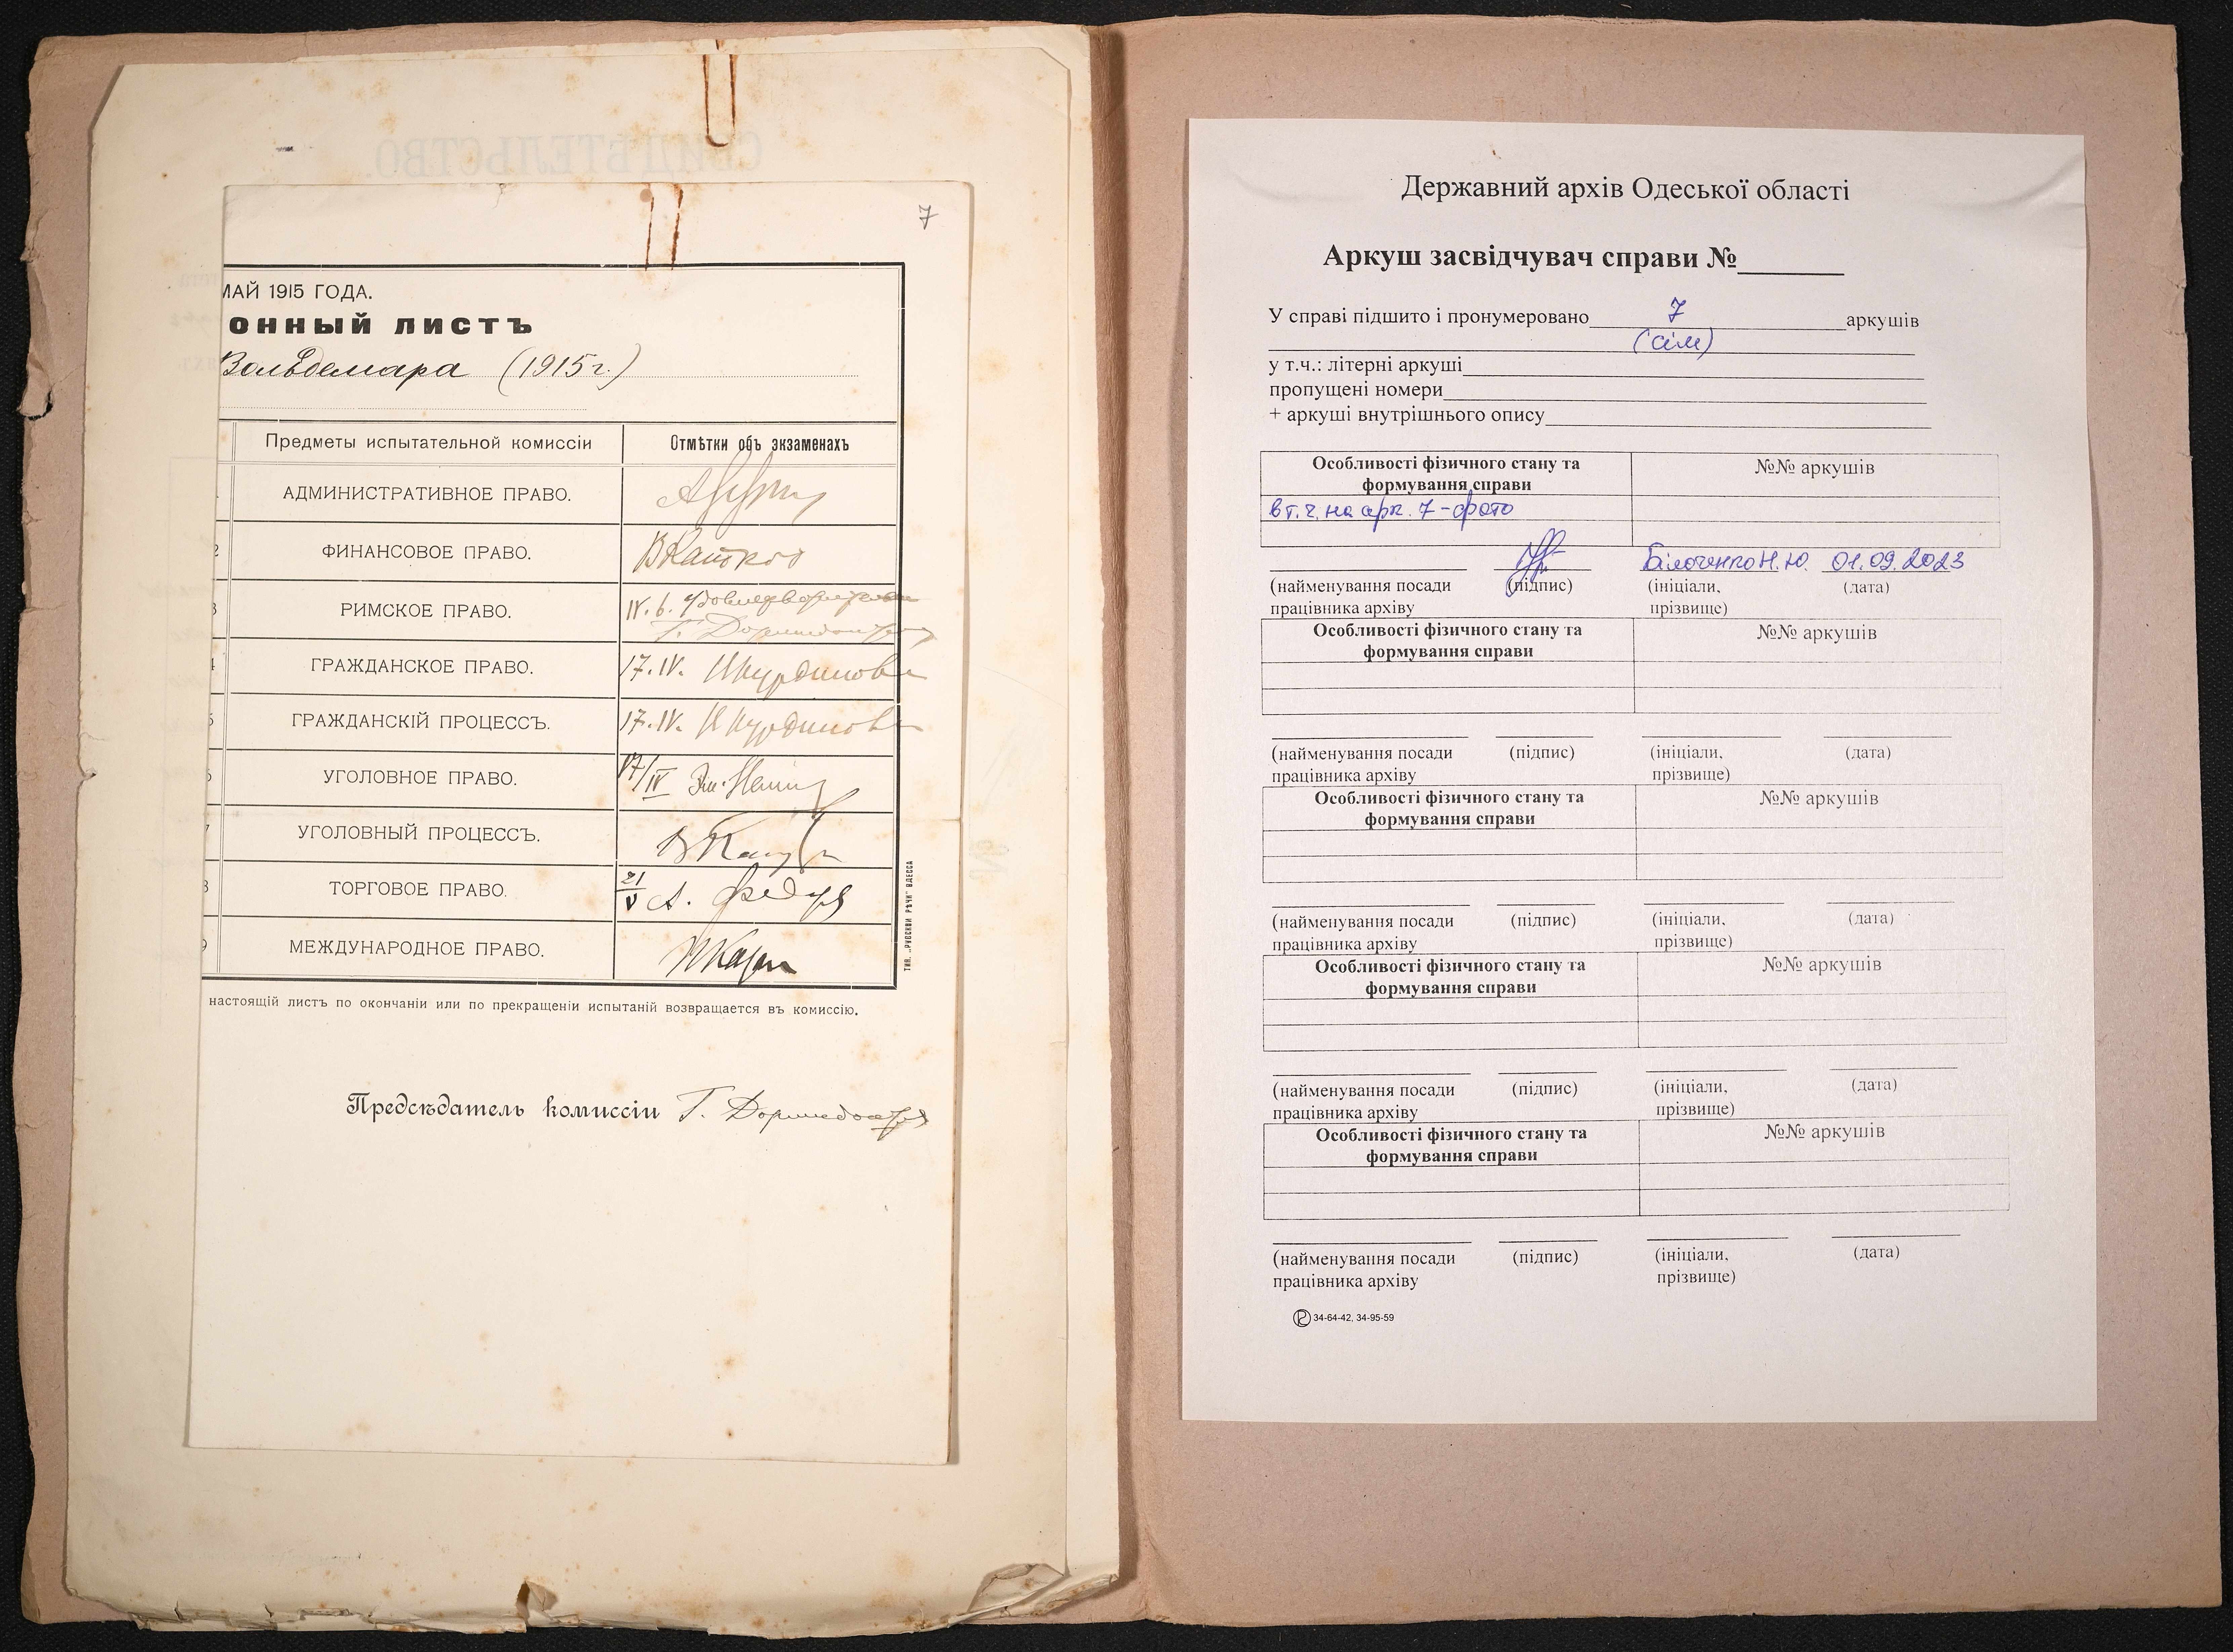 СВИДѢТЕЛЬСТВО.
7
МАЙ 1915 ГОДА.
онный листъ
Вольдемара (1915г.)
Предметы испытательной комиссіи Отмѣтки объ экзаменахъ
АДМИНИСТРАТИВНОЕ ПРАВО.
2 ФИНАНСОВОЕ ПРАВО.
3 РИМСКОЕ ПРАВО. IV. 6. Удовлетворительно
4 ГРАЖДАНСКОЕ ПРАВО. 17. IV.
5 ГРАЖДАНСКІЙ ПРОЦЕССЪ. 17. IV.
6 УГОЛОВНОЕ ПРАВО. 17/IV
7 УГОЛОВНЫЙ ПРОЦЕССЪ.
8 ТОРГОВОЕ ПРАВО. 21/V А.
9 МЕЖДУНАРОДНОЕ ПРАВО.
ТИП. „РУССКОЙ РѢЧИ" ОДЕССА
настоящій листъ по окончаніи или по прекращеніи испытаній возвращается въ комиссію.
Предсѣдатель комиссіи Г.
Державний архів Одеської області
Аркуш засвідчувач справи №
У справі підшито і пронумеровано 7 аркушів
(сім)
у т.ч.: літерні аркуші
пропущені номери
+ аркуші внутрішнього опису
Особливості фізичного стану та №№ аркушів
формування справи
в т.ч. на арк. 7 - фото
Білоченко Н. Ю. 01.09.2023
(найменування посади (підпис) (ініціали, (дата)
працівника архіву прізвище)
Особливості фізичного стану та №№ аркушів
формування справи
(найменування посади (підпис) (ініціали, (дата)
працівника архіву прізвище)
Особливості фізичного стану та №№ аркушів
формування справи
(найменування посади (підпис) (ініціали, (дата)
працівника архіву прізвище)
Особливості фізичного стану та №№ аркушів
формування справи
(найменування посади (підпис) (ініціали, (дата)
працівника архіву прізвище)
Особливості фізичного стану та №№ аркушів
формування справи
(найменування посади (підпис) (ініціали, (дата)
працівника архіву прізвище)
34-64-42, 34-95-59